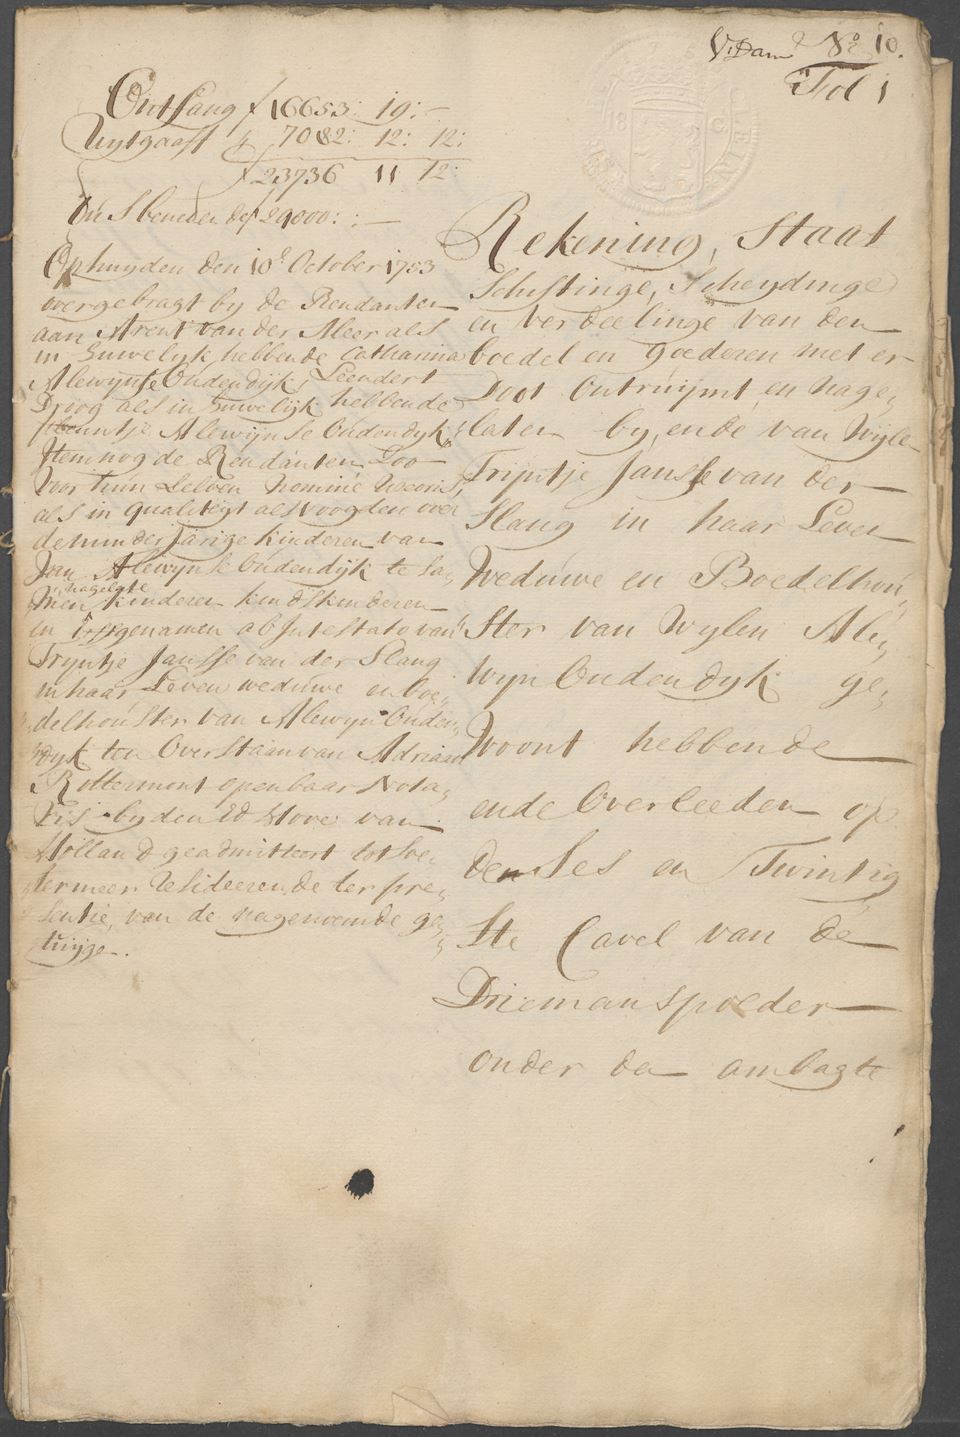 V: Dam No 10.
Fol 1
Ontfang f 16653: 19: -
Uytgaaff f 7082: 12: 12:
f 23736 11 12:
Dus beneden de f 24000: : -
Op huyden den 10e October 1753
overgebragt by de Rendanten
aan Arent van der Meer als
in huwelyk hebbende Catharina
Alewynse Oudendyk, Leendert
Droog als in huwelijk hebbende
Alewynse Oudendyk
Item nog de Rendanten Soo
voor hun Selven Nomine Uxoris,
als in qualiteyt als voogden over
de minderjarige kinderen van
Jan Alewynse Oudendijk te sa„
nagelate
men kinderen kindskinderen
en Erffgenamen ab Intestato van
Tryntje Jansse van der Slang
in haar Leven weduwe en boe„
delhouster van Alewyn Ouden„
dyk ten Overstaan van Adriaan
Rottermont openbaar Nota„
ris by den Ed Hove van
Holland geadmitteert tot Soe„
termeer Resideerende ter pre„
sentie van de nagenoemde ge„
tuijge.
Rekening, Staat
Schiftinge, Scheydinge
en verdeelinge van den
boedel en goederen met er
Doot Ontruijmt en nage„
laten by, ende van Wyle
Trijntje Jansse van der
Slang in haar Leven
Weduwe en Boedelhou„
ster van Wylen Ale„
wyn Oudendyk ge„
woont hebbende
ende Overleeden op
den Ses en Twintig
ste Cavel van de
Driemanspolder
onder den ambagte